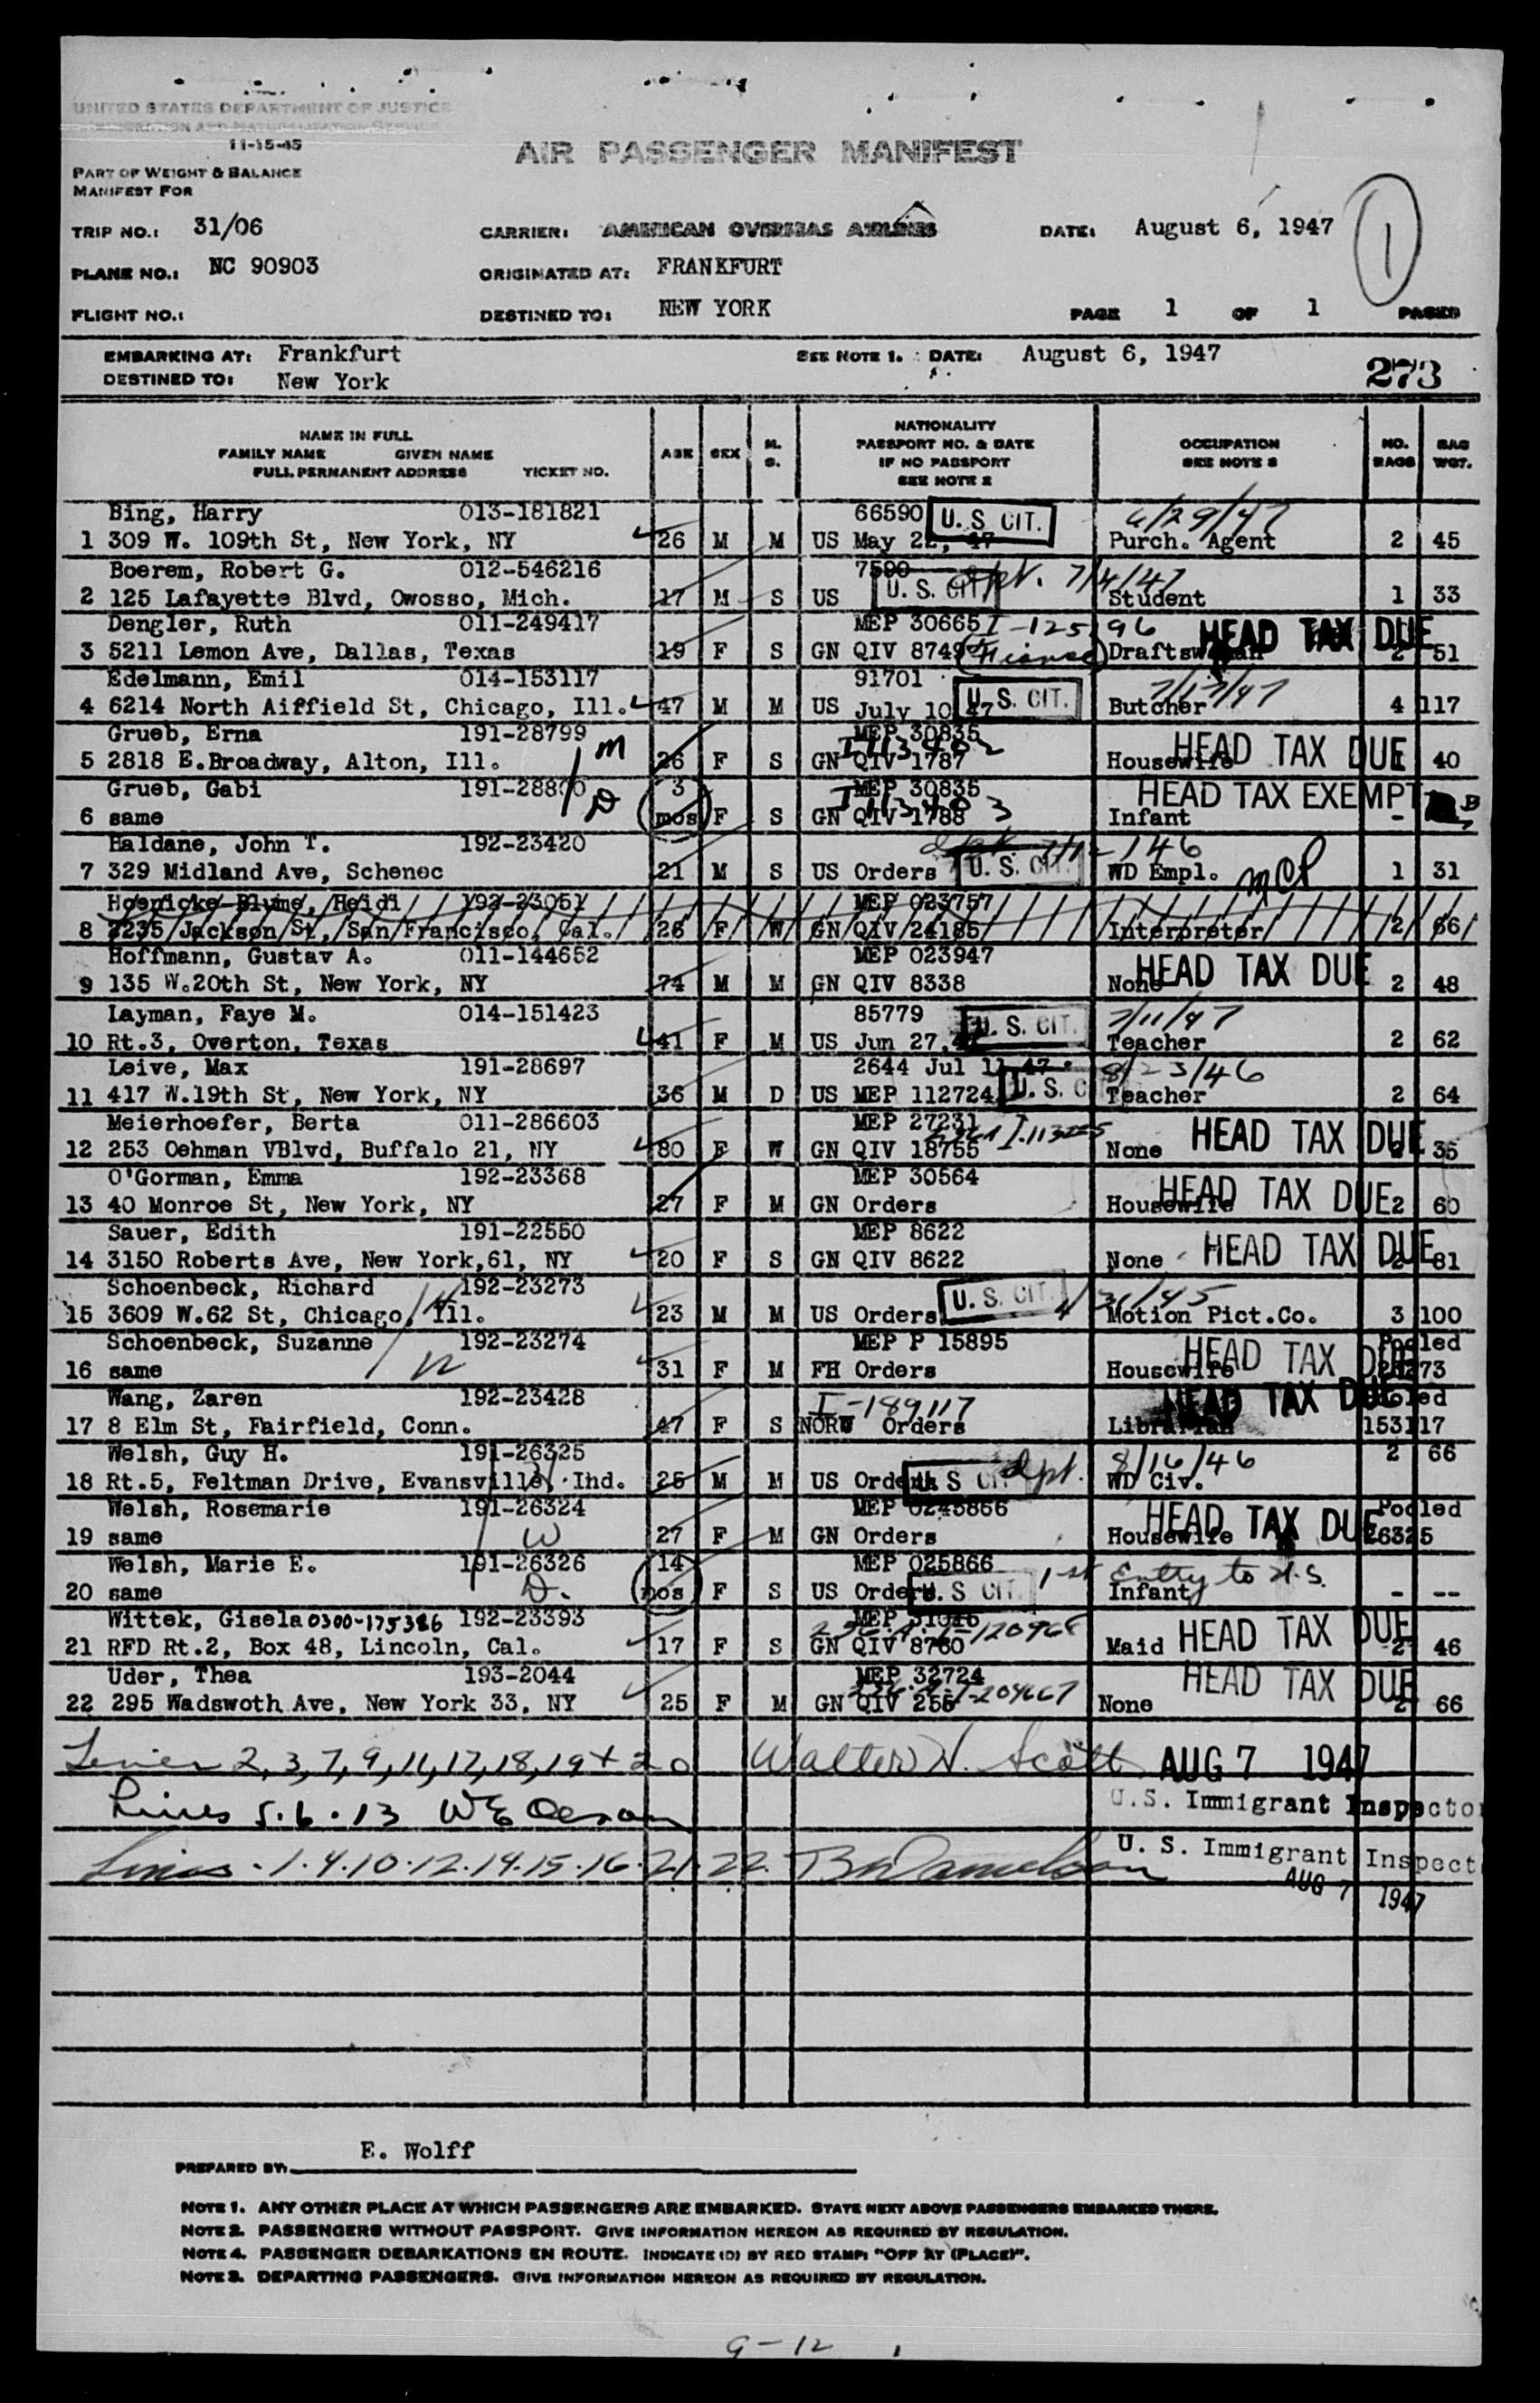 UNITED STATES DEPARTMENT OF JUSTICE
IMMIGRATION AND NATURALIZATION SERVICE
11-15-45
AIR PASSENGER MANIFEST
PART OF WEIGHT & BALANCE
MANIFEST FOR
TRIP NO.: 31/06 CARRIER: AMERICAN OVERSEAS AIRLINES DATE: August 6, 1947 1
PLANE NO.: NC 90903 ORIGINATED AT: FRANKFURT
FLIGHT NO.: DESTINED TO: NEW YORK PAGE 1 OF 1 PAGES
EMBARKING AT: Frankfurt SEE NOTE 1. DATE: August 6, 1947
DESTINED TO: New York 273
NAME IN FULL
FAMILY NAME GIVEN NAME
FULL PERMANENT ADDRESS TICKET NO.
AGE SEX M. S.
NATIONALITY
PASSPORT NO. & DATE
IF NO PASSPORT
SEE NOTE 2
OCCUPATION
SEE NOTE 3
NO. BAGS
BAG WGT.
Bing, Harry 013-181821 66590 U. S. CIT. 6/29/47
1 309 W. 109th St, New York, NY 26 M M US May 22, 47 Purch. Agent 2 45
Boerem, Robert G. 012-546216 7590 dpt. 7/4/47
2 125 Lafayette Blvd, Owosso, Mich. 17 M S US U. S. CIT. Student 1 33
Dengler, Ruth 011-249417 MEP 30665 I-125 96 HEAD TAX DUE
3 5211 Lemon Ave, Dallas, Texas 19 F S GN QIV 8749 (Fiancee) 2 51
Edelmann, Emil 014-153117 91701 U. S. CIT. 7/17/47
4 6214 North Aiffield St, Chicago, Ill. 47 M M US July 10, 47 Butcher 4 117
Grueb, Erna 191-28799 M MEP 30835 I 113402 HEAD TAX DUE
5 2818 E.Broadway, Alton, Ill. 26 F S GN QIV 1787 Housewife 40
Grueb, Gabi 191-28800 D 3 MEP 30835 I 113403 HEAD TAX EXEMPT
6 same mos F S GN QIV 1788 Infant -
Haldane, John T. 192-23420 U. S. CIT.
7 329 Midland Ave, Schenec 21 M S US Orders WD Empl. 1 31
Hoenicke-Blume, Heidi 192-23051 MEP 023757
8 2235 Jackson St, San Francisco, Cal. 26 F W GN QIV 24185 Interpreter 2 66
Hoffmann, Gustav A. 011-144652 MEP 023947 HEAD TAX DUE
9 135 W.20th St, New York, NY 74 M M GN QIV 8338 None 2 48
Layman, Faye M. 014-151423 85779 U. S. CIT. 7/11/47
10 Rt.3, Overton, Texas 41 F M US Jun 27, Teacher 2 62
Leive, Max 191-28697 2644 Jul 11 47 8/23/46
11 417 W.19th St, New York, NY 36 M D US MEP 112724 U. S. C Teacher 2 64
Meierhoefer, Berta 011-286603 MEP 27231 HEAD TAX DUE
12 253 Oehman VBlvd, Buffalo 21, NY 80 F W GN QIV 18755 None 35
O'Gorman, Emma 192-23368 MEP 30564 HEAD TAX DUE
13 40 Monroe St, New York, NY 27 F M GN Orders Housewife 2 60
Sauer, Edith 191-22550 MEP 8622 HEAD TAX DUE
14 3150 Roberts Ave, New York,61, NY 20 F S GN QIV 8622 None 2 81
Schoenbeck, Richard 192-23273 U. S. CIT.
15 3609 W.62 St, Chicago, Ill. 23 M M US Orders Motion Pict.Co. 3 100
Schoenbeck, Suzanne 192-23274 MEP P 15895 HEAD TAX DUE Pooled
16 same W 31 F M FH Orders Housewife 23273
Wang, Zaren 192-23428 I-189117 HEAD TAX DUE Pooled
17 8 Elm St, Fairfield, Conn. 47 F S NORW Orders Librarian 153117
Welsh, Guy H. 191-26325 dpt. 8/16/46 2 66
18 Rt.5, Feltman Drive, Evansville, Ind. 25 M M US Orders U. S. CIT WD Civ.
Welsh, Rosemarie 191-26324 MEP 0245866 HEAD TAX DUE Pooled
19 same W 27 F M GN Orders Housewife 26325
Welsh, Marie E. 191-26326 14 MEP 025866 1st Entry to U.S.
20 same D. mos F S US Orders U. S. CIT Infant - --
Wittek, Gisela 0300-175386 192-23393 MEP 31046 HEAD TAX DUE
21 RFD Rt.2, Box 48, Lincoln, Cal. 17 F S GN QIV 8760 I-120968 Maid 2 46
Uder, Thea 193-2044 MEP 32724 HEAD TAX DUE
22 295 Wadswoth Ave, New York 33, NY 25 F M GN QIV 256 I-204667 None 2 66
Lines 2, 3, 7, 9, 11, 17, 18, 19 + 20 Walter N. Scott AUG 7 1947
U.S. Immigrant Inspector
Lines 5. 6. 13
Lines . 1. 4. 10. 12. 14. 15. 16. 21. 22. U. S. Immigrant Inspect
AUG 7 1947
PREPARED BY: E. Wolff
NOTE 1. ANY OTHER PLACE AT WHICH PASSENGERS ARE EMBARKED. STATE NEXT ABOVE PASSENGERS EMBARKED THERE.
NOTE 2. PASSENGERS WITHOUT PASSPORT. GIVE INFORMATION HEREON AS REQUIRED BY REGULATION.
NOTE 4. PASSENGER DEBARKATIONS EN ROUTE. INDICATE (D) BY RED STAMP: "OFF AT (PLACE)".
NOTE 3. DEPARTING PASSENGERS. GIVE INFORMATION HEREON AS REQUIRED BY REGULATION.
9-12